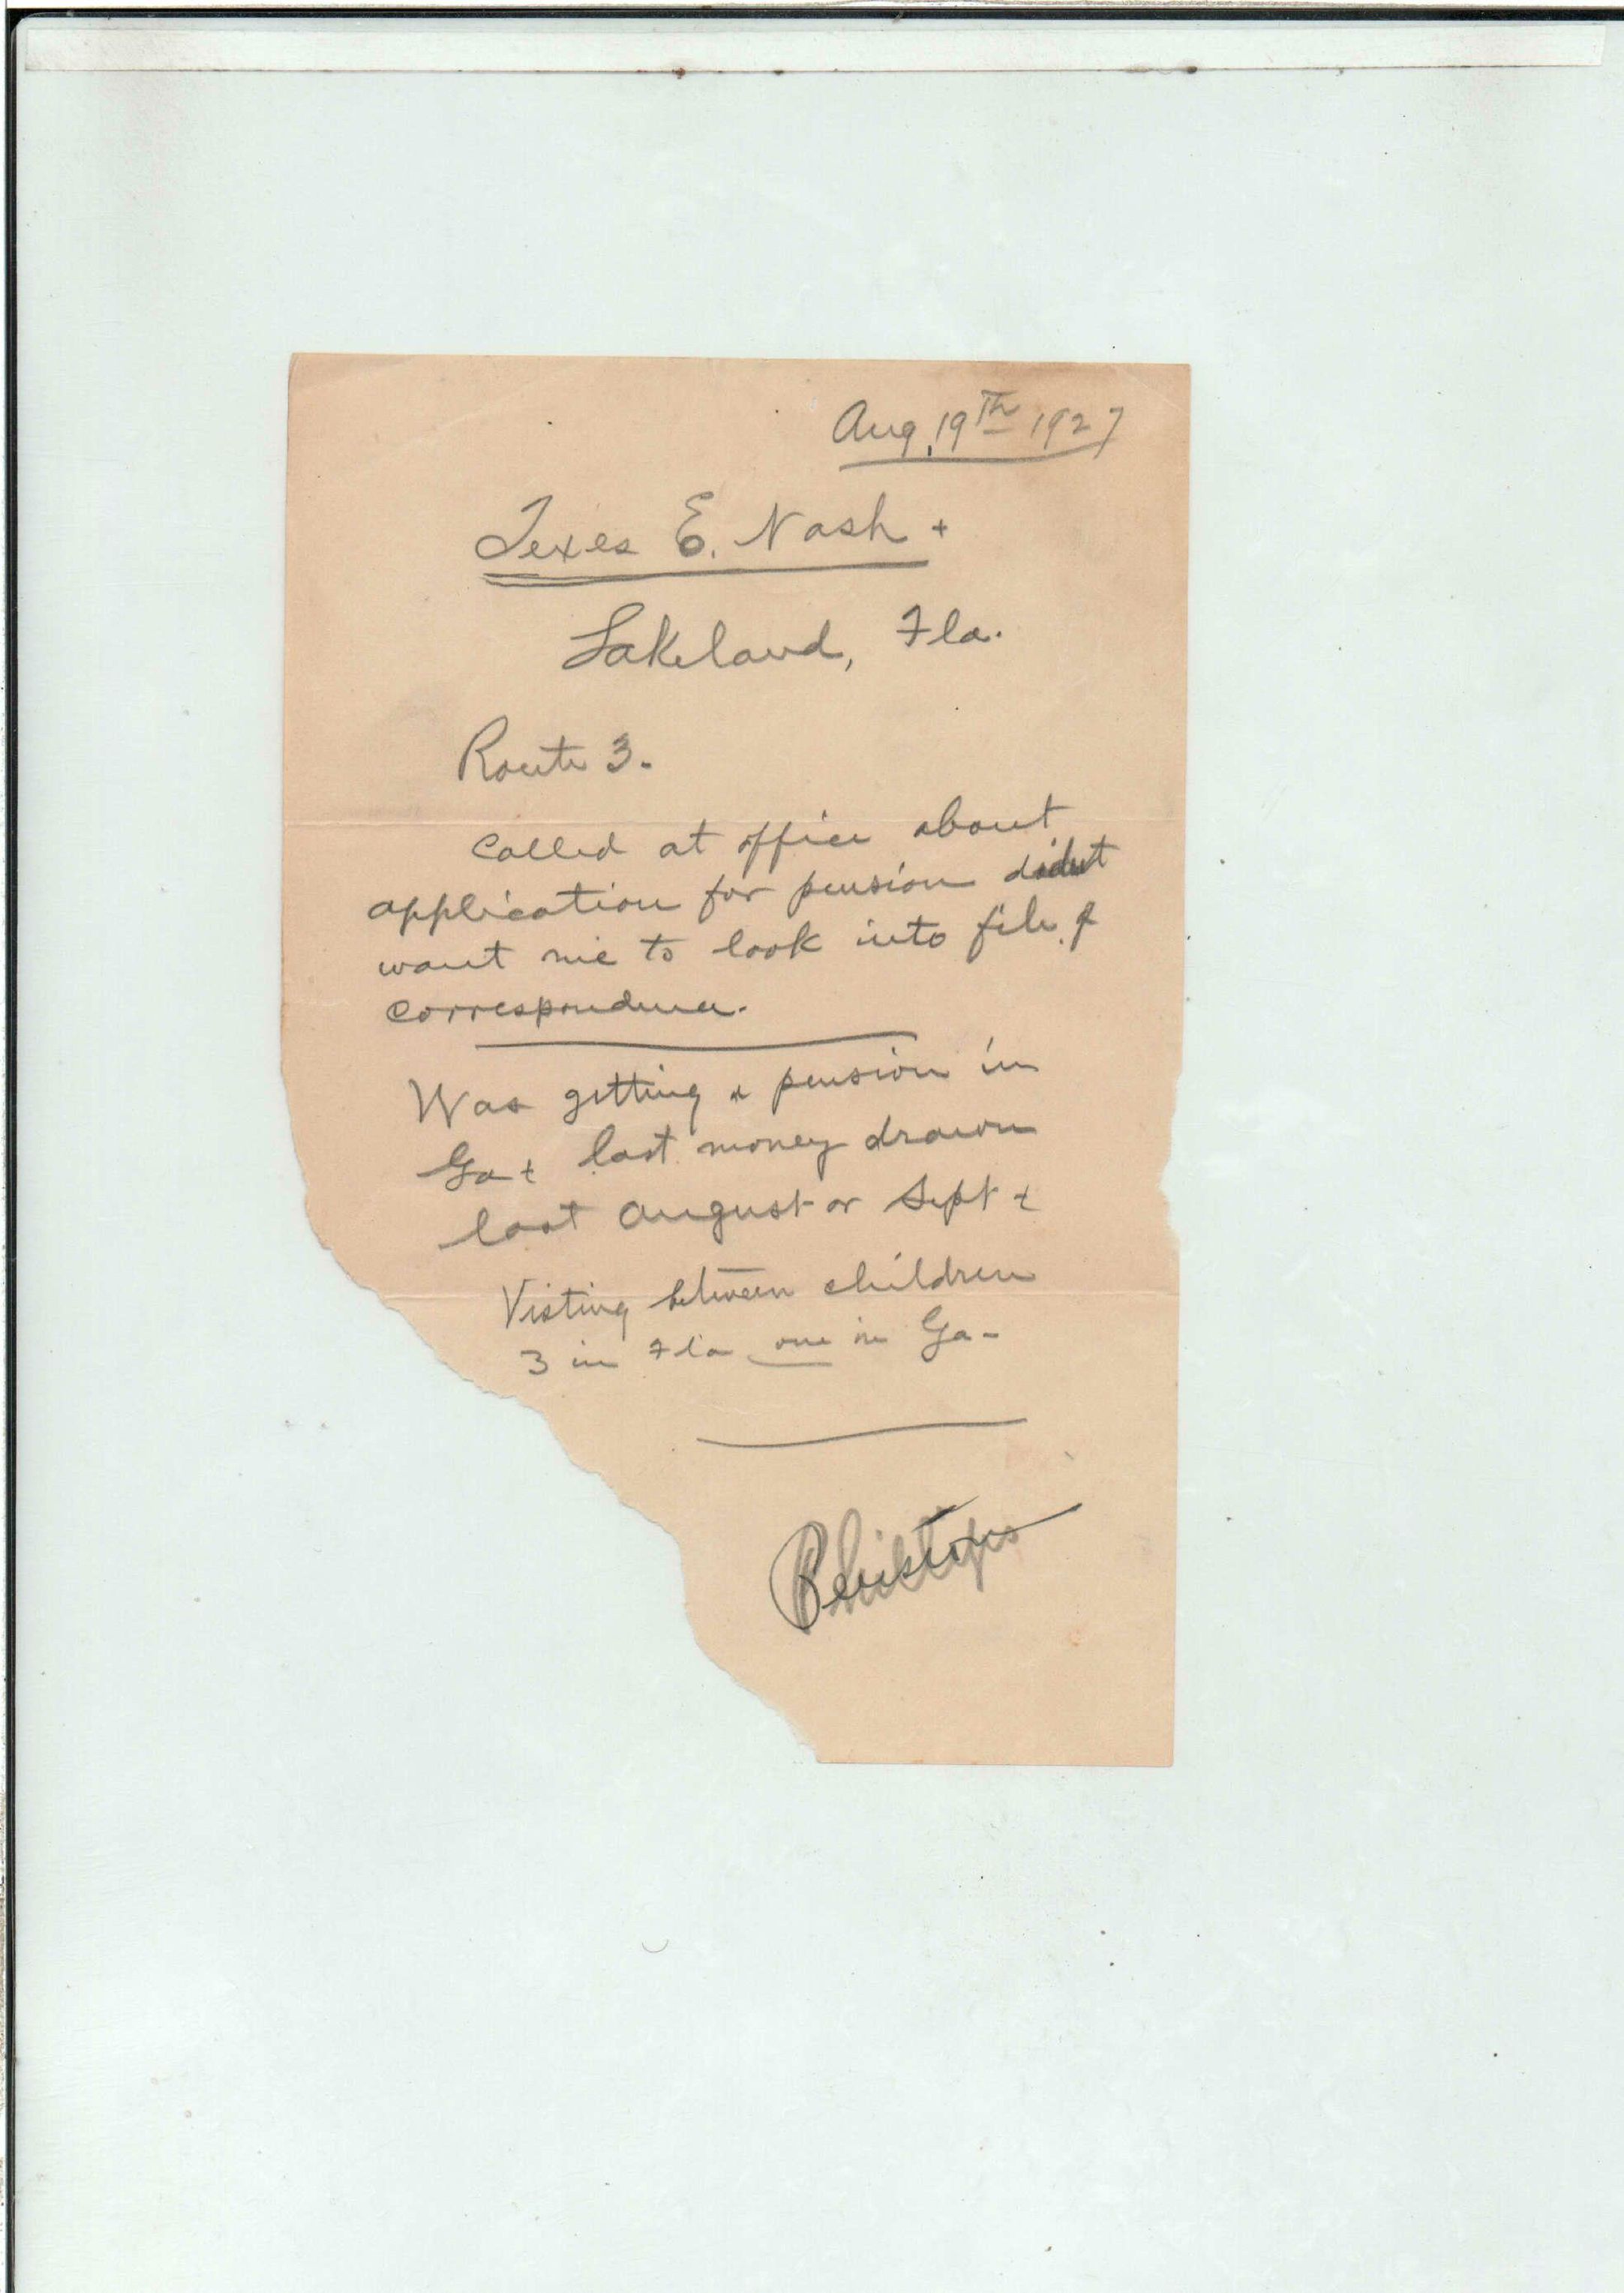 Aug. 19th 1927
Texes E. Nash +
Lakeland, Fla.
Route 3.
Called at office about
application for pension didnt
want me to look into file of
correspondence.
Was getting a pension in
Ga + last money drawn
last August or Sept +
Visting between children
3 in Fla one in Ga -